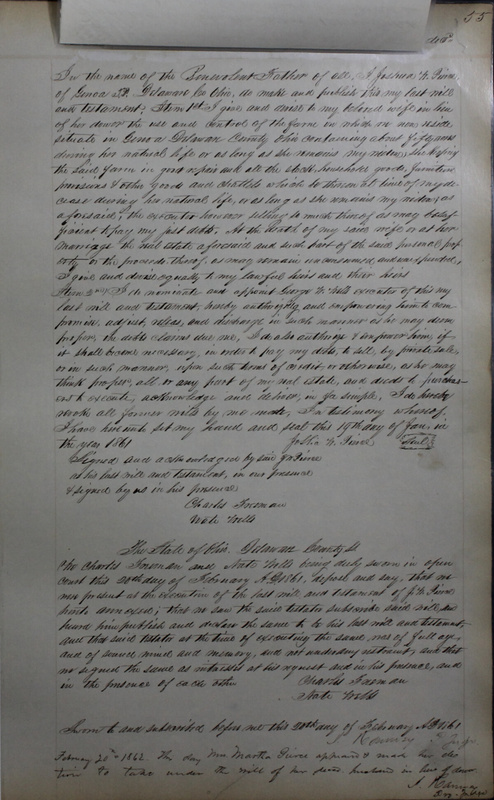 55
In the name of the Benevolent Father of all, I Joshua W. Pierce
of Genoa Tp. Delaware Co. Ohio, do make and publish this my last will
and testament: Item 1st I give and devise to my beloved wife in lieu
of her dower the use and control of the farm in which we now reside
situate in Genoa Delaware County Ohio containing about fifty acres
during her natural life or as long as she remains my widow, she keeping
the said farm in good repair and all the stock, household goods, furniture
provisions & other goods and chattels which be thereon at time of my de
cease during her natural life, or as long as she remains my widow, as
aforesaid; the executor however selling so much thereof as may be suf
ficient to pay my just debts. At the death of my said wife or at her
marriage the real estate aforesaid and such part of the said personal prop
erty or the proceeds thereof, as may remain unconsumed, and unexpended,
I give and devise equally to my lawful heirs and their heirs
Item 2nd I do nominate and appoint George W. Wells executor of this my
last will and testament, hereby authorizing and empowering him to com
promise, adjust, release, and discharge in such manner as he may deem
proper, the debts & claims due me, I do also authorize & empower him, if
it shall become necessary, in order to pay my debts, to sell, by private sale,
or in such manner, upon such terms of credit or otherwise, as he may
think proper, all or any part of my real estate, and deeds to purchas-
ers to execute, acknowledge and deliver, in fee simple. I do hereby
revoke all former wills by me made, In testimony whereof,
I have hereunto set my hand and seal this 19th day of Jan. in
the year 1861
Josh'a W. Pierce Seal
Signed and acknowledged by said J W Pierce
as his last will and testament, in our presence
& signed by us in his presence
Charles Freeman
Nate Wells
The State of Ohio. Delaware County SS
We Charles Freeman and Nate Wells being duly sworn in open
court this 20th day of February A.D. 1861, depose and say, that we
were present at the execution of the last will and testament of J. W. Pierce
hereto annexed; that we saw the said testator subscribe said will, and
heard him publish and declare the same to be his last will and testament
and that said testator at the time of executing the same, was of full age,
and of sound mind and memory, and not under any restraint, and that
we signed the same as witnesses at his request and in his presence, and
in the presence of each other
Charles Freeman
Nate Wells
Sworn to and subscribed before me this 20th day of February A.D. 1861
February 20th 1862. This day Mrs Martha Pierce appeared & made her elec
tion to take under the will of her decd. husband in lieu of dower.